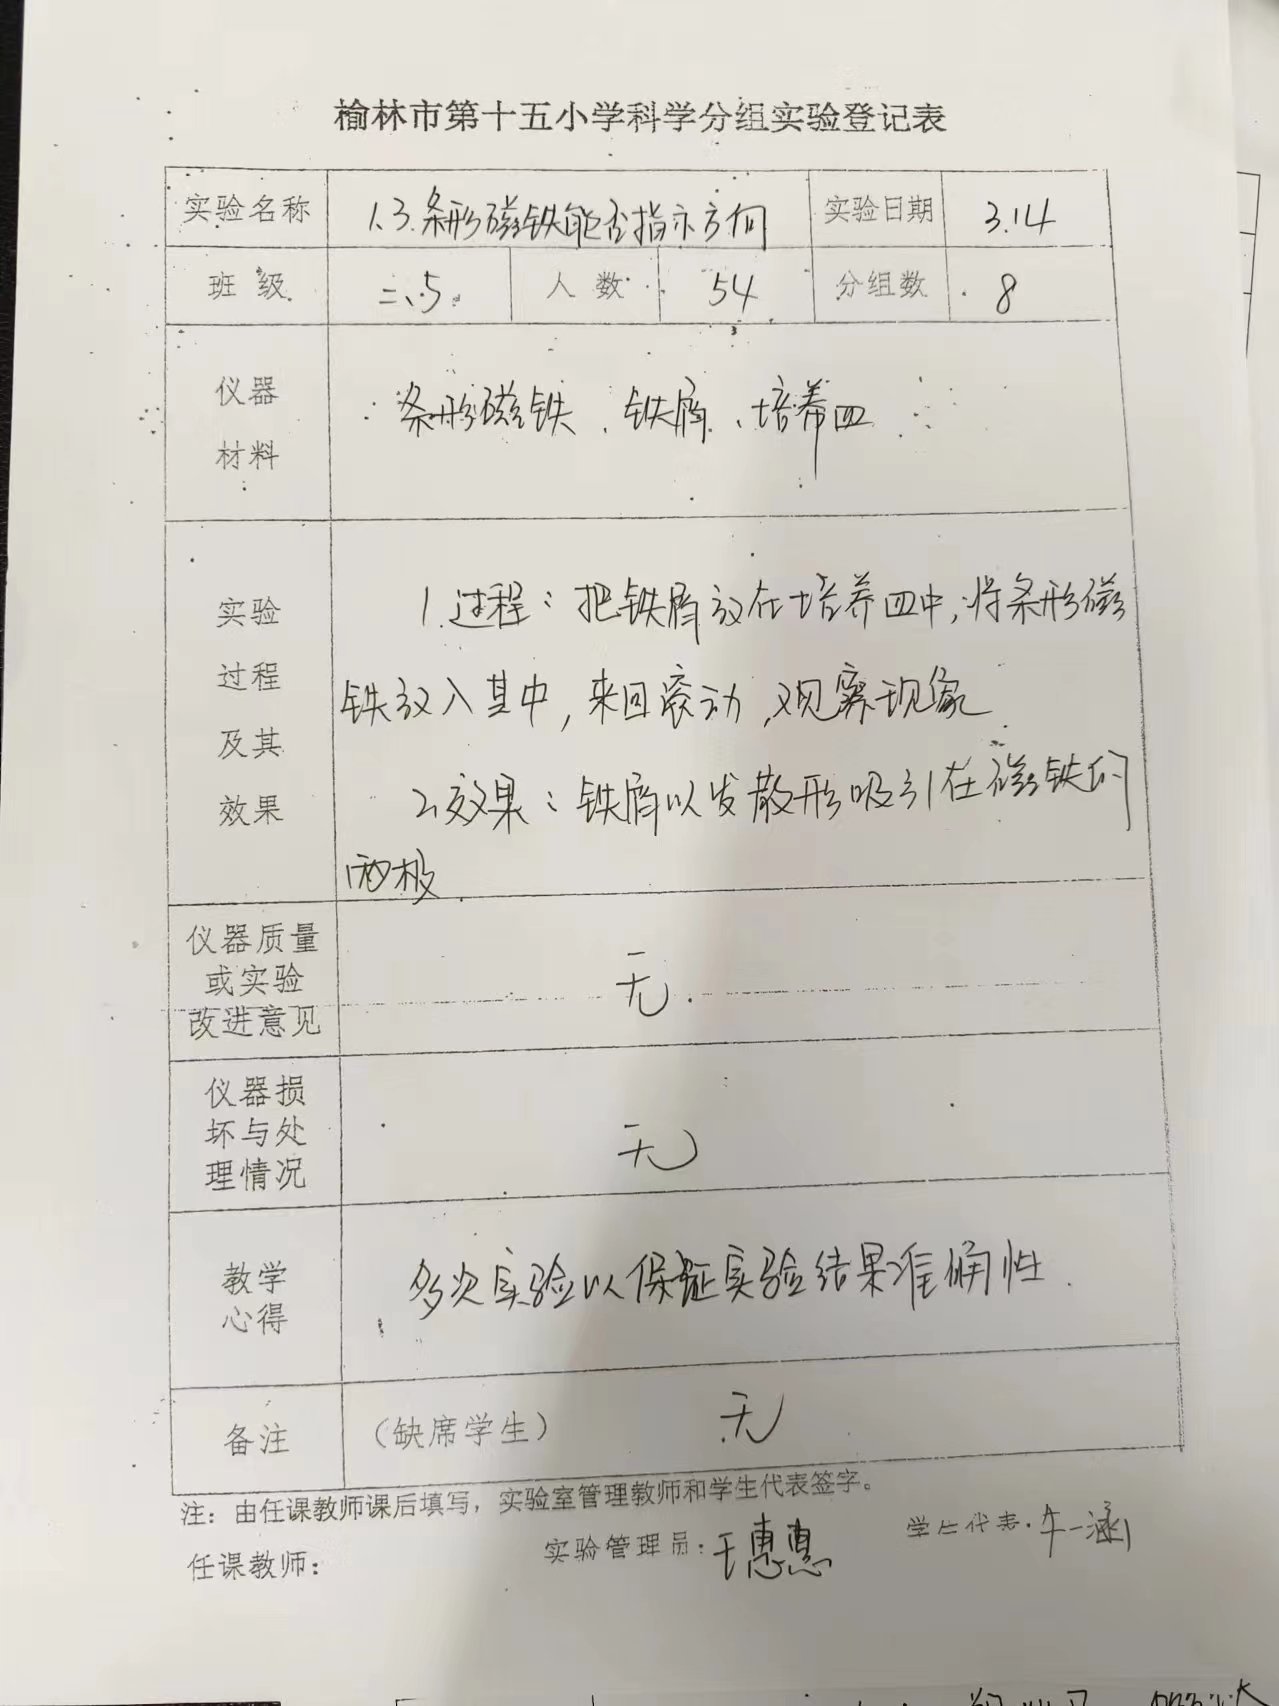 榆林市第十五小学科学分组实验登记表
实验名称 1.3.条形磁铁能否指示方向 实验日期 3.14
班级 二.5 人数 54 分组数 8
仪器
材料
条形磁铁、铁屑、培养皿
实验
过程
及其
效果
1.过程：把铁屑放在培养皿中,将条形磁
铁放入其中,来回滚动,观察现象
2.效果：铁屑以发散形吸引在磁铁的
两极
仪器质量
或实验
改进意见
无.
仪器损
坏与处
理情况
无
教学
心得
多次实验以保证实验结果准确性.
备注 （缺席学生） 无
注：由任课教师课后填写，实验室管理教师和学生代表签字。
任课教师： 实验管理员：王惠惠 学生代表：牛一涵